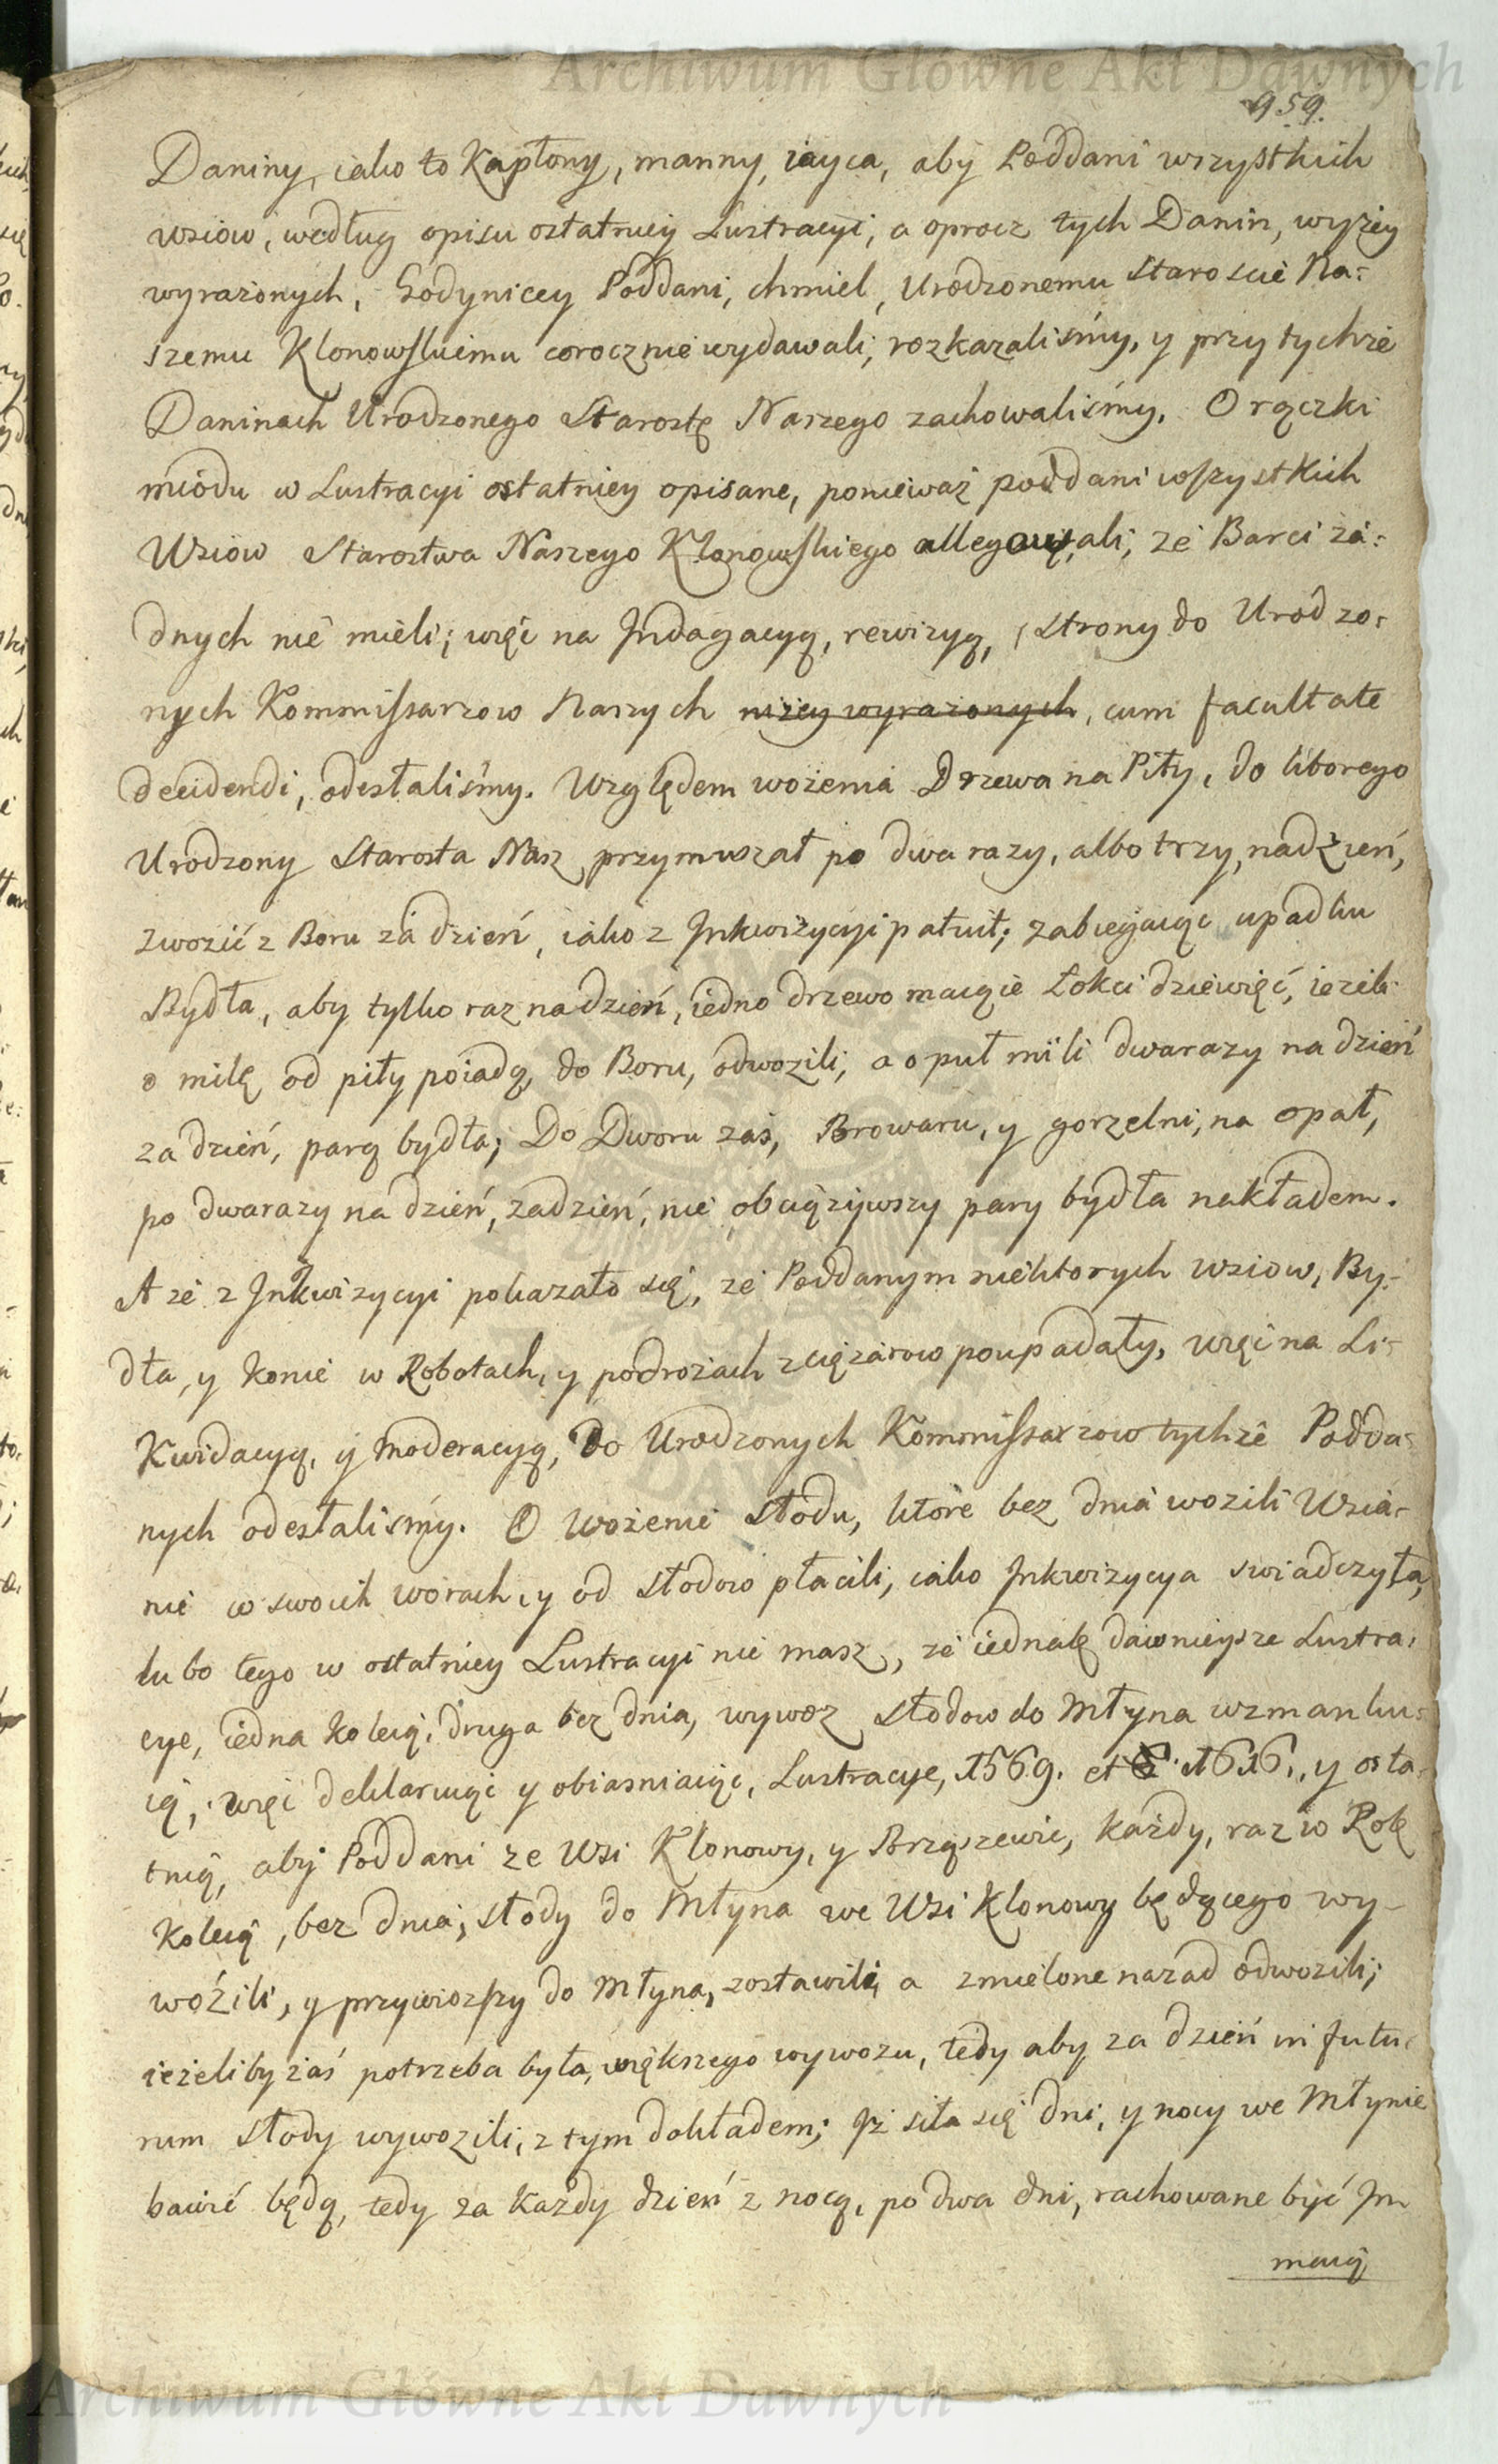 Archiwum Główne Akt Dawnych
959.
Daniny, iako to Kapłony, manny, iayca, aby Poddani wszystkich
wsiow, według opisu ostatniey Lustracyi, a oprocz tych Danin, wyżey
wyrażonych, Godyniccy Poddani, chmiel, Urodzonemu Staroscie Na-
szemu Klonowskiemu corocznie wydawali, rozkazaliśmy, y przy tychże
Daninach Urodzonego Starostę Naszego zachowaliśmy. O rączki
miodu w Lustracyi ostatniey opisane, ponieważ poddani wszystkich
Wsiow Starostwa Naszego Klonowskiego allegowali, że Barci ża-
dnych nie mieli; więc na Indagacyą, rewizyą, strony do Urodzo-
nych Kommissarzow Naszych niżey wyrażonych, cum facultate
decidendi, odesłaliśmy. Względem wożenia Drzewa na Piły, do ktorego
Urodzony Starosta Nasz przymuszał po dwa razy, albo trzy, na dzień,
zwozić z Boru za dzień, iako z Inkwizycyi patuit; zabiegaiąc upadku
Bydła, aby tylko raz na dzień, iedno drzewo maiące Łokci dziewięć, ieżeli
o milę od piły poiadą, do Boru, odwozili, a o puł mili dwa razy na dzień
za dzień, parą bydła; Do Dworu zaś, Browaru, y gorzelni, na opał,
po dwa razy na dzień, za dzień, nie obciążywszy pary bydła nakładem.
A że z Inkwizycyi pokazało się, że Poddanym niektorych wsiow, By-
dła, y konie w Robotach, y podrożach z ciężarow poupadały, więc na Li-
kwidacyą, y moderacyą, Do Urodzonych Kommissarzow tychże Podda-
nych odesłaliśmy. O Wożenie słodu, ktore bez dnia wozili Wsia-
nie w swoich worach, y od słodow płacili, iako Inkwizycya swiadczyła,
lubo tego w ostatniey Lustracyi nie masz, że iednak dawnieysze Lustra-
cye, iedna koleią, druga bez dnia, wywoz słodow do Młyna wzmanku-
ią, więc deklaruiąc y obiasniaiąc, Lustracye, 1569. et 1616., y osta-
tnią, aby Poddani ze Wsi Klonowy, y Brząszewic, każdy, raz w Rok
koleią, bez dnia, słody do Młyna we Wsi Klonowy będącego wy-
woźili, y przywiozszy do Młyna, zostawili, a zmielone nazad odwozili;
ieżeliby zaś potrzeba była, większego wywozu, tedy aby za dzień in futu-
rum słody wywozili, z tym dokładem; Iż siła się dni, y nocy we Młynie
bawić będą, tedy za każdy dzień z nocą, po dwa dni, rachowane być Im
maią
Archiwum Główne Akt Dawnych